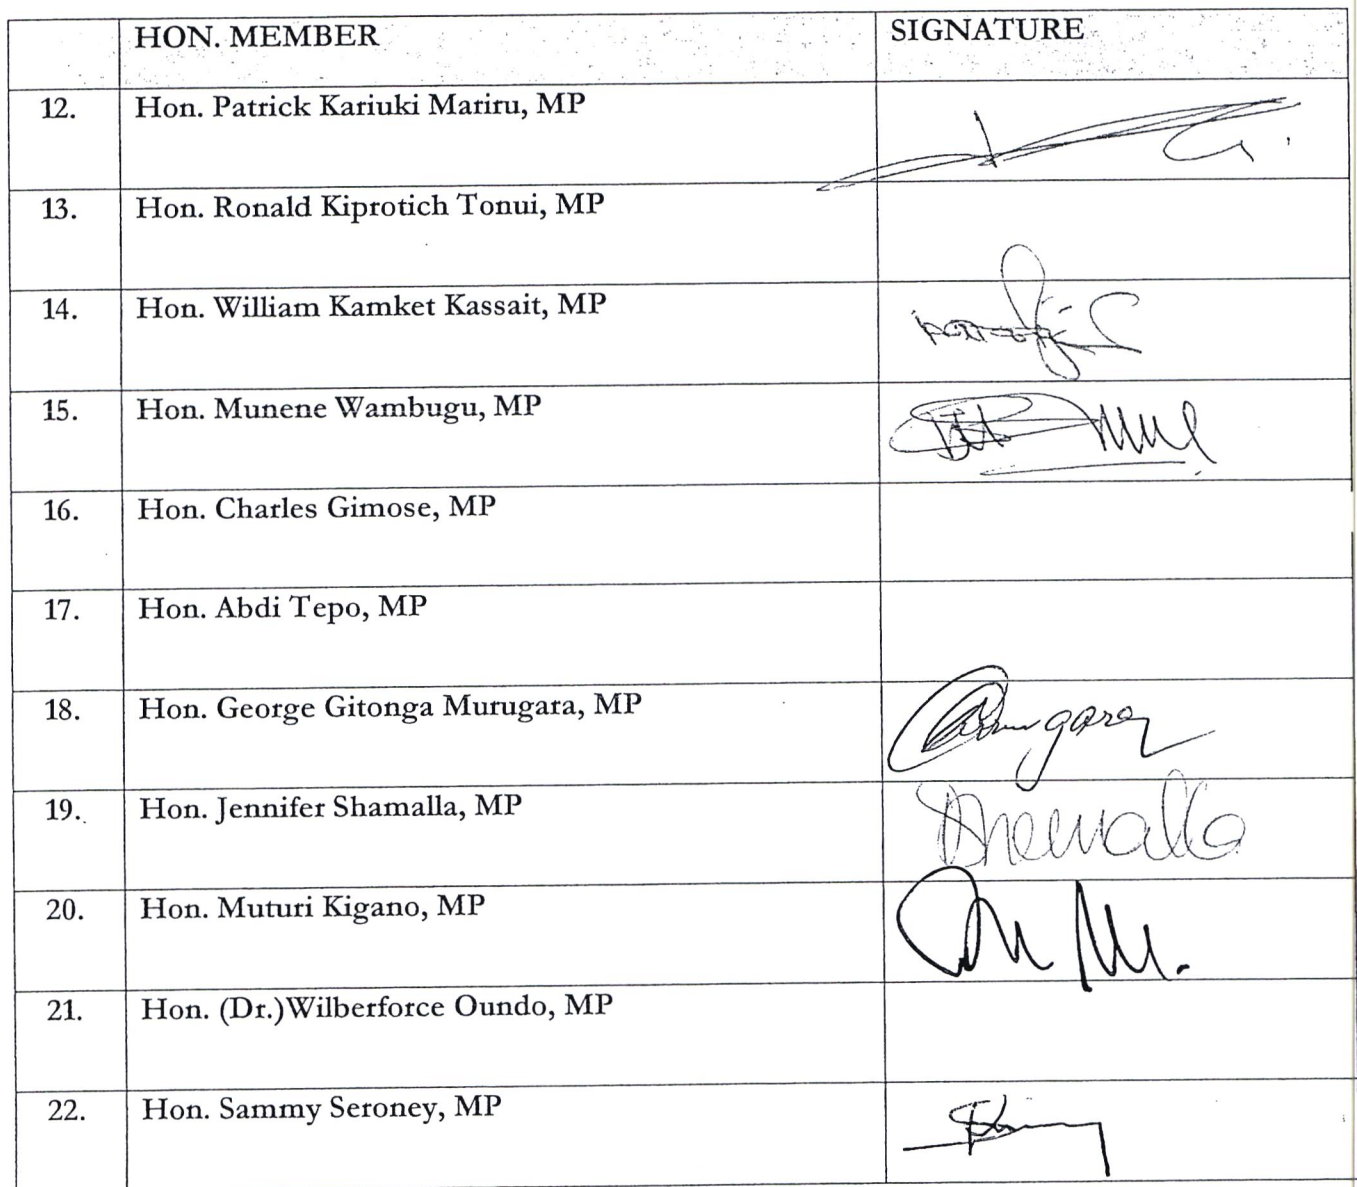 HON. MEMBER SIGNATURE
12. Hon. Patrick Kariuki Mariru, MP
13. Hon. Ronald Kiprotich Tonui, MP
14. Hon. William Kamket Kassait, MP
15. Hon. Munene Wambugu, MP
16. Hon. Charles Gimose, MP
17. Hon. Abdi Tepo, MP
18. Hon. George Gitonga Murugara, MP
19. Hon. Jennifer Shamalla, MP
20. Hon. Muturi Kigano, MP
21. Hon. (Dr.)Wilberforce Oundo, MP
22. Hon. Sammy Seroney, MP